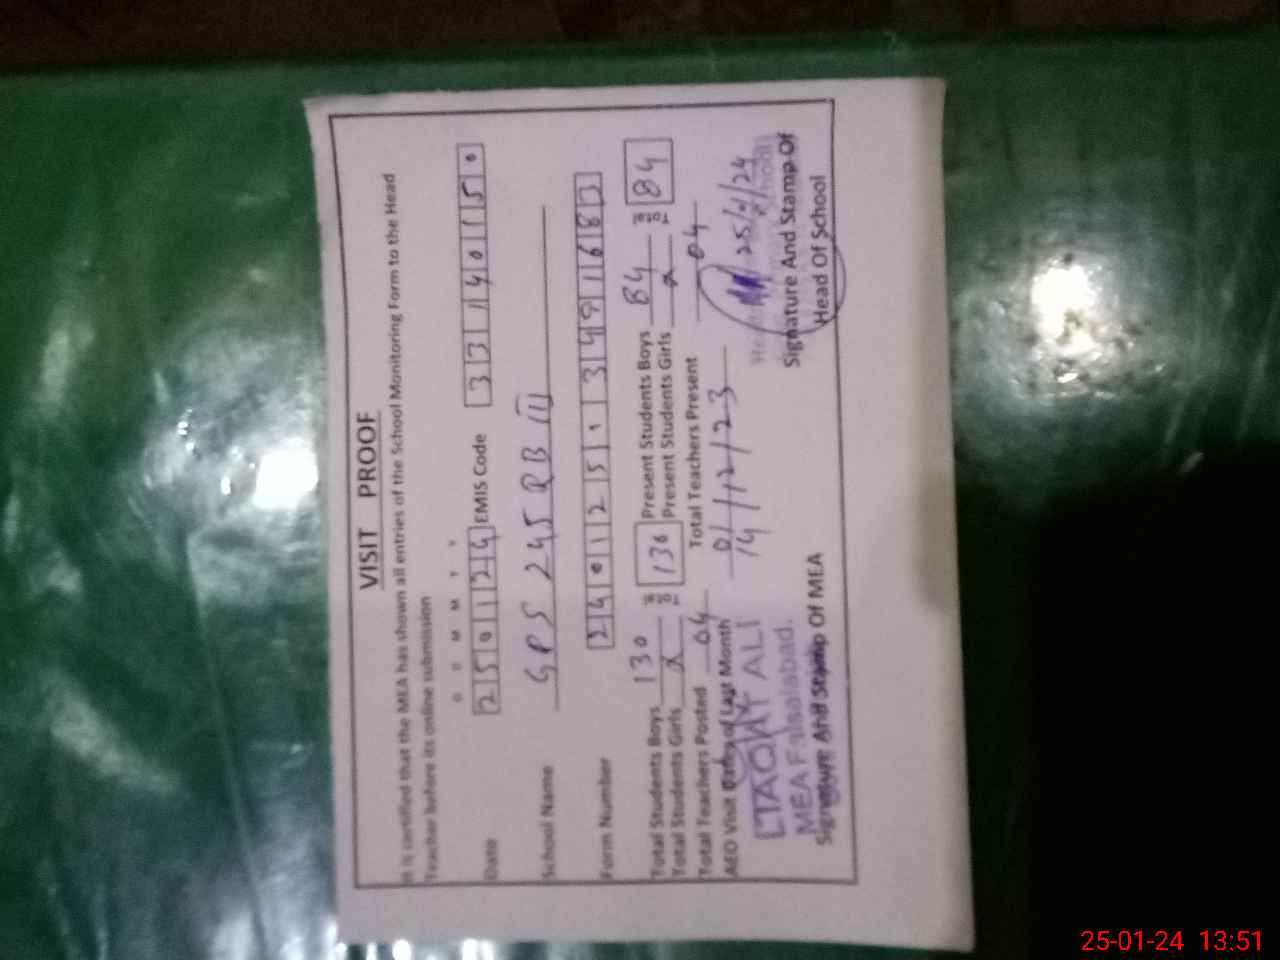 VISIT PROOF
It is certified that the MEA has shown all entries of the School Monitoring Form to the Head
Teacher before its online submission
D D M M Y Y
Date 250124 EMIS Code 33140150
School Name GPS 245 RB III
Form Number
Total Students Boys 130 Total 130 Present Students Boys 84 Total 84
Total Students Girls Present Students Girls
Total Teachers Posted 04 Total Teachers Present 04
AEO Visit Dates of Last Month 01/12/23
14
LIAQAT ALI
MEA Faisalabad.
Signature And Stamp Of MEA
25/1/24
Signature And Stamp Of
Head Of School
25-01-24 13:51